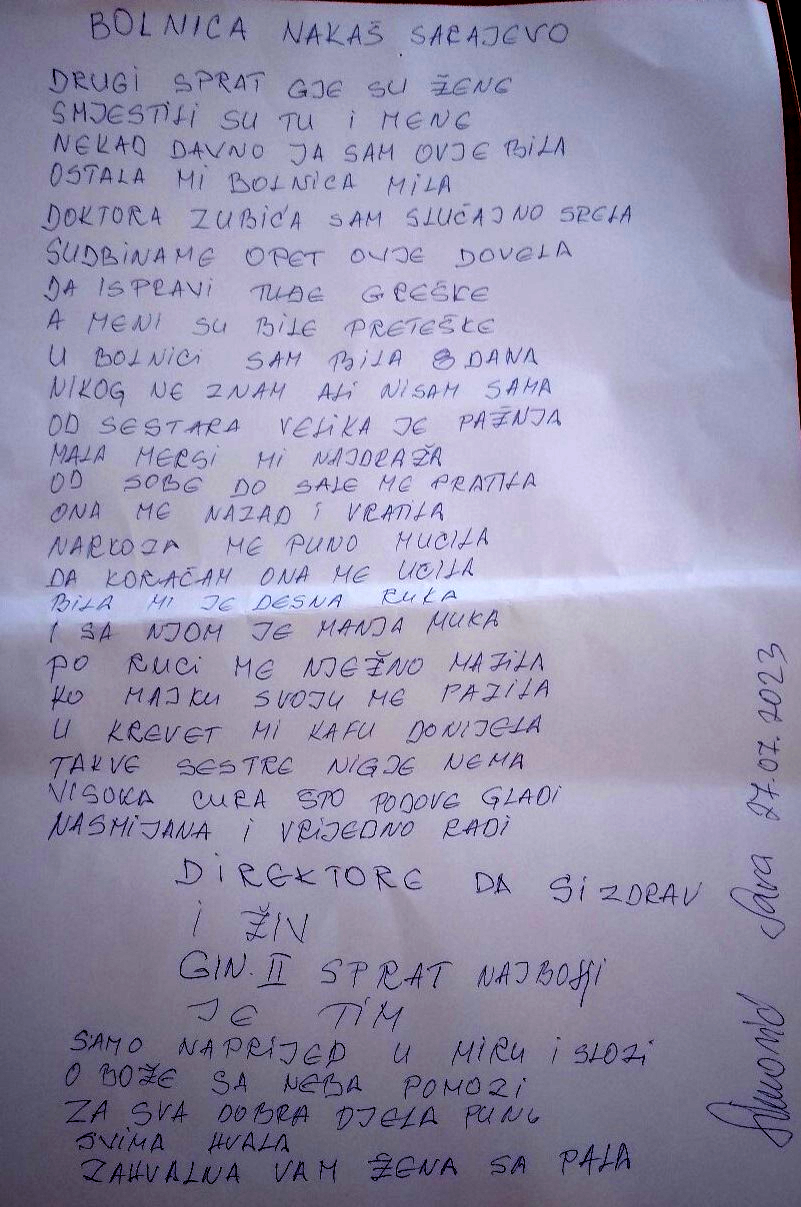 BOLNICA NAKAŠ SARAJEVO
DRUGI SPRAT GJE SU ŽENE
SMJESTILI SU TU I MENE
NEKAD DAVNO JA SAM OVJE BILA
OSTALA MI BOLNICA MILA
DOKTORA ZUBIĆA SAM SLUČAJNO SRELA
SUDBINA ME OPET OVJE DOVELA
DA ISPRAVI TUĐE GREŠKE
A MENI SU BILE PRETEŠKE
U BOLNICI SAM BILA 8 DANA
NIKOG NE ZNAM ALI NISAM SAMA
OD SESTARA VELIKA JE PAŽNJA
MALA MERSI MI NAJDRAŽA
OD SOBE DO SALE ME PRATILA
ONA ME NAZAD I VRATILA
NARKOZA ME PUNO MUCILA
DA KORAČAM ONA ME UCILA
BILA MI JE DESNA RUKA
I SA NJOM JE MANJA MUKA
PO RUCI ME NJEŽNO MAZILA
KO MAJKU SVOJU ME PAZILA
U KREVET MI KAFU DONIJELA
TAKVE SESTRE NIGJE NEMA
VISOKA CURA ŠTO PODOVE GLADI
NASMIJANA I VRIJEDNO RADI
DIREKTORE DA SI ZDRAV
I ŽIV
GIN. II SPRAT NAJBOLJI
JE TIM
SAMO NAPRIJED U MIRU I SLOZI
O BOŽE SA NEBA POMOZI
ZA SVA DOBRA DJELA PUNO
SVIMA HVALA
ZAHVALNA VAM ŽENA SA PALA
Sava 27.07.2023